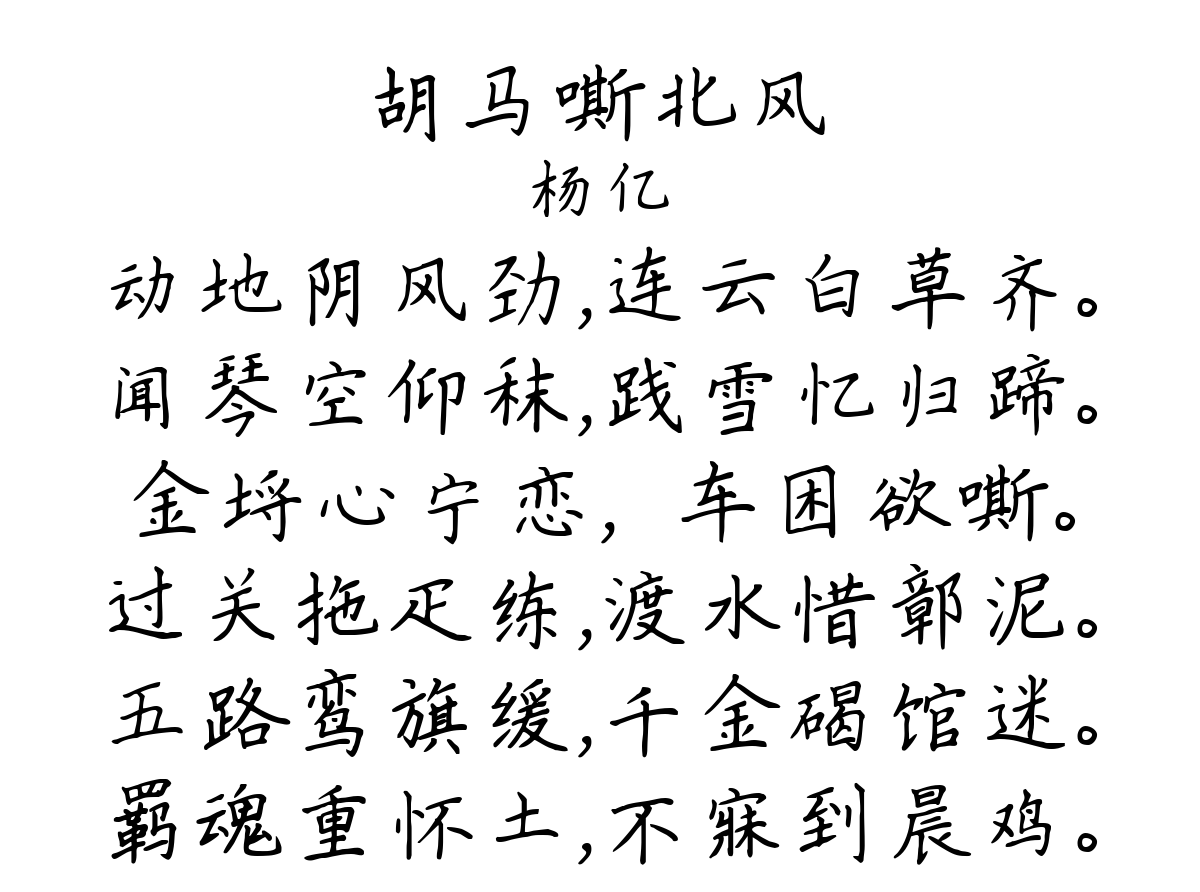 胡马嘶北风
杨亿
动地阴风劲,连云白草齐。
闻琴空仰秣,践雪忆归蹄。
金埒心宁恋,车困欲嘶。
过关拖疋练,渡水惜鄣泥。
五路鸾旗缓,千金碣馆迷。
羁魂重怀土,不寐到晨鸡。